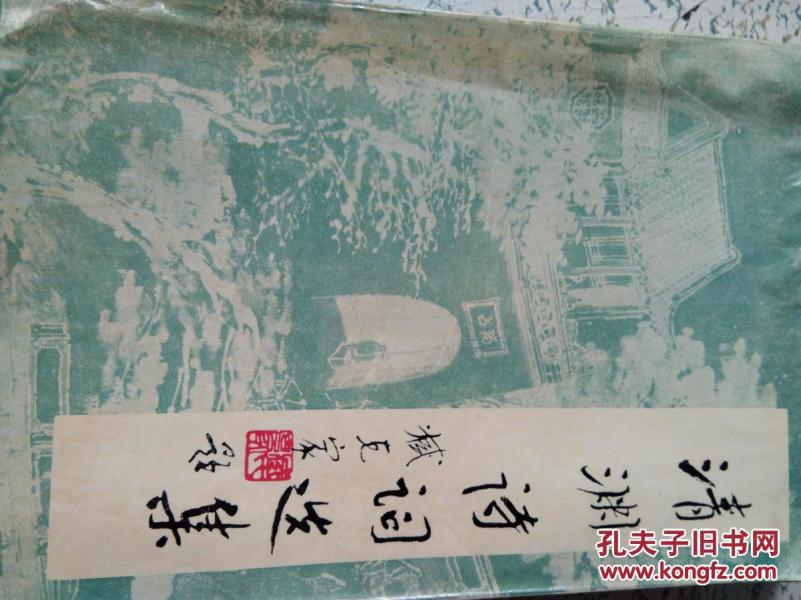 清渊诗词选集
臧克家题
孔夫子旧书网
www.kongfz.com